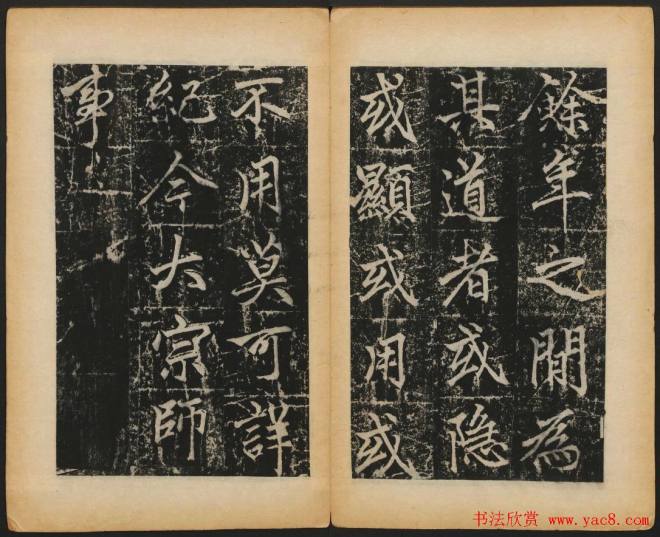 餘年之間為
其道者或隐
或顯或用或
不用莫可詳
紀今大宗師
事
书法欣赏 www.yac8.com